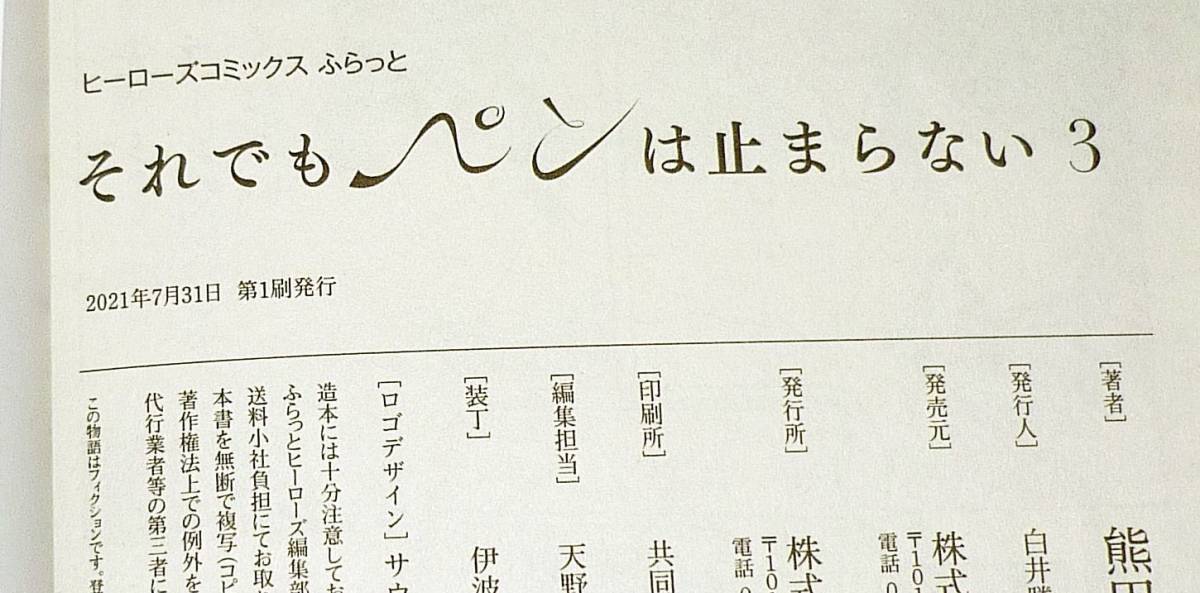 ヒーローズコミックス ふらっと
それでもペンは止まらない 3
2021年7月31日 第1刷発行
[著者] 熊
[発行人] 白井
[発売元] 株式
〒101
電話 0
[発行所] 株式
〒10
電話 0
[印刷所] 共同
[編集担当] 天野
[装丁] 伊波
[ロゴデザイン] サウ
造本には十分注意してお
ふらっとヒーローズ編集部
送料小社負担にてお取
本書を無断で複写(コピ
著作権法上での例外を
代行業者等の第三者に
この物語はフィクションです。登